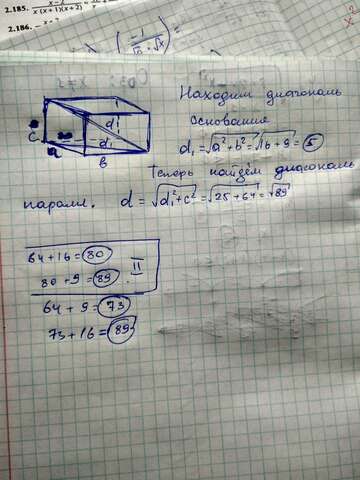 2.185.
x(x+1)(x+2)
2.186.
Находим диагональ
основание
d₁=√a²+b²=√16+9=5
Теперь найдём диагональ
паралл. d=√d₁²+c²=√25+64=√89
c
a
b
d
d₁
64+16=80
80+9=89. II
64+9=73
73+16=89